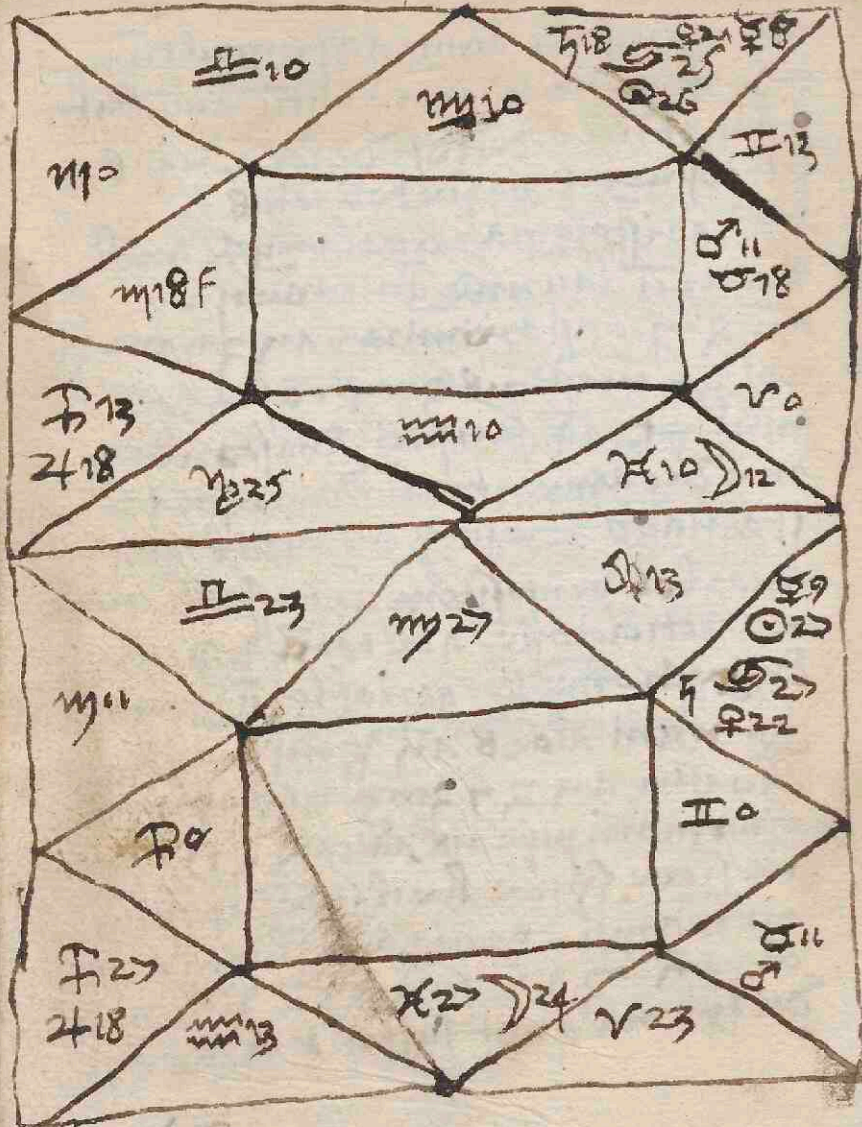 ♎10
♍10
♄18 ♀21 ☿8
♋25
☉26
♏0
♊13
♏18
♂11
♉18
♐13
♃18
♑25
♒10
♓10 ☽12
♈0
♎23
♍27
♌13
☿9
☉27
♄ ♋27
♀22
♏11
♐0
♊0
♐27
♃18
♒13
♓27 ☽24
♈23
♉11
♂